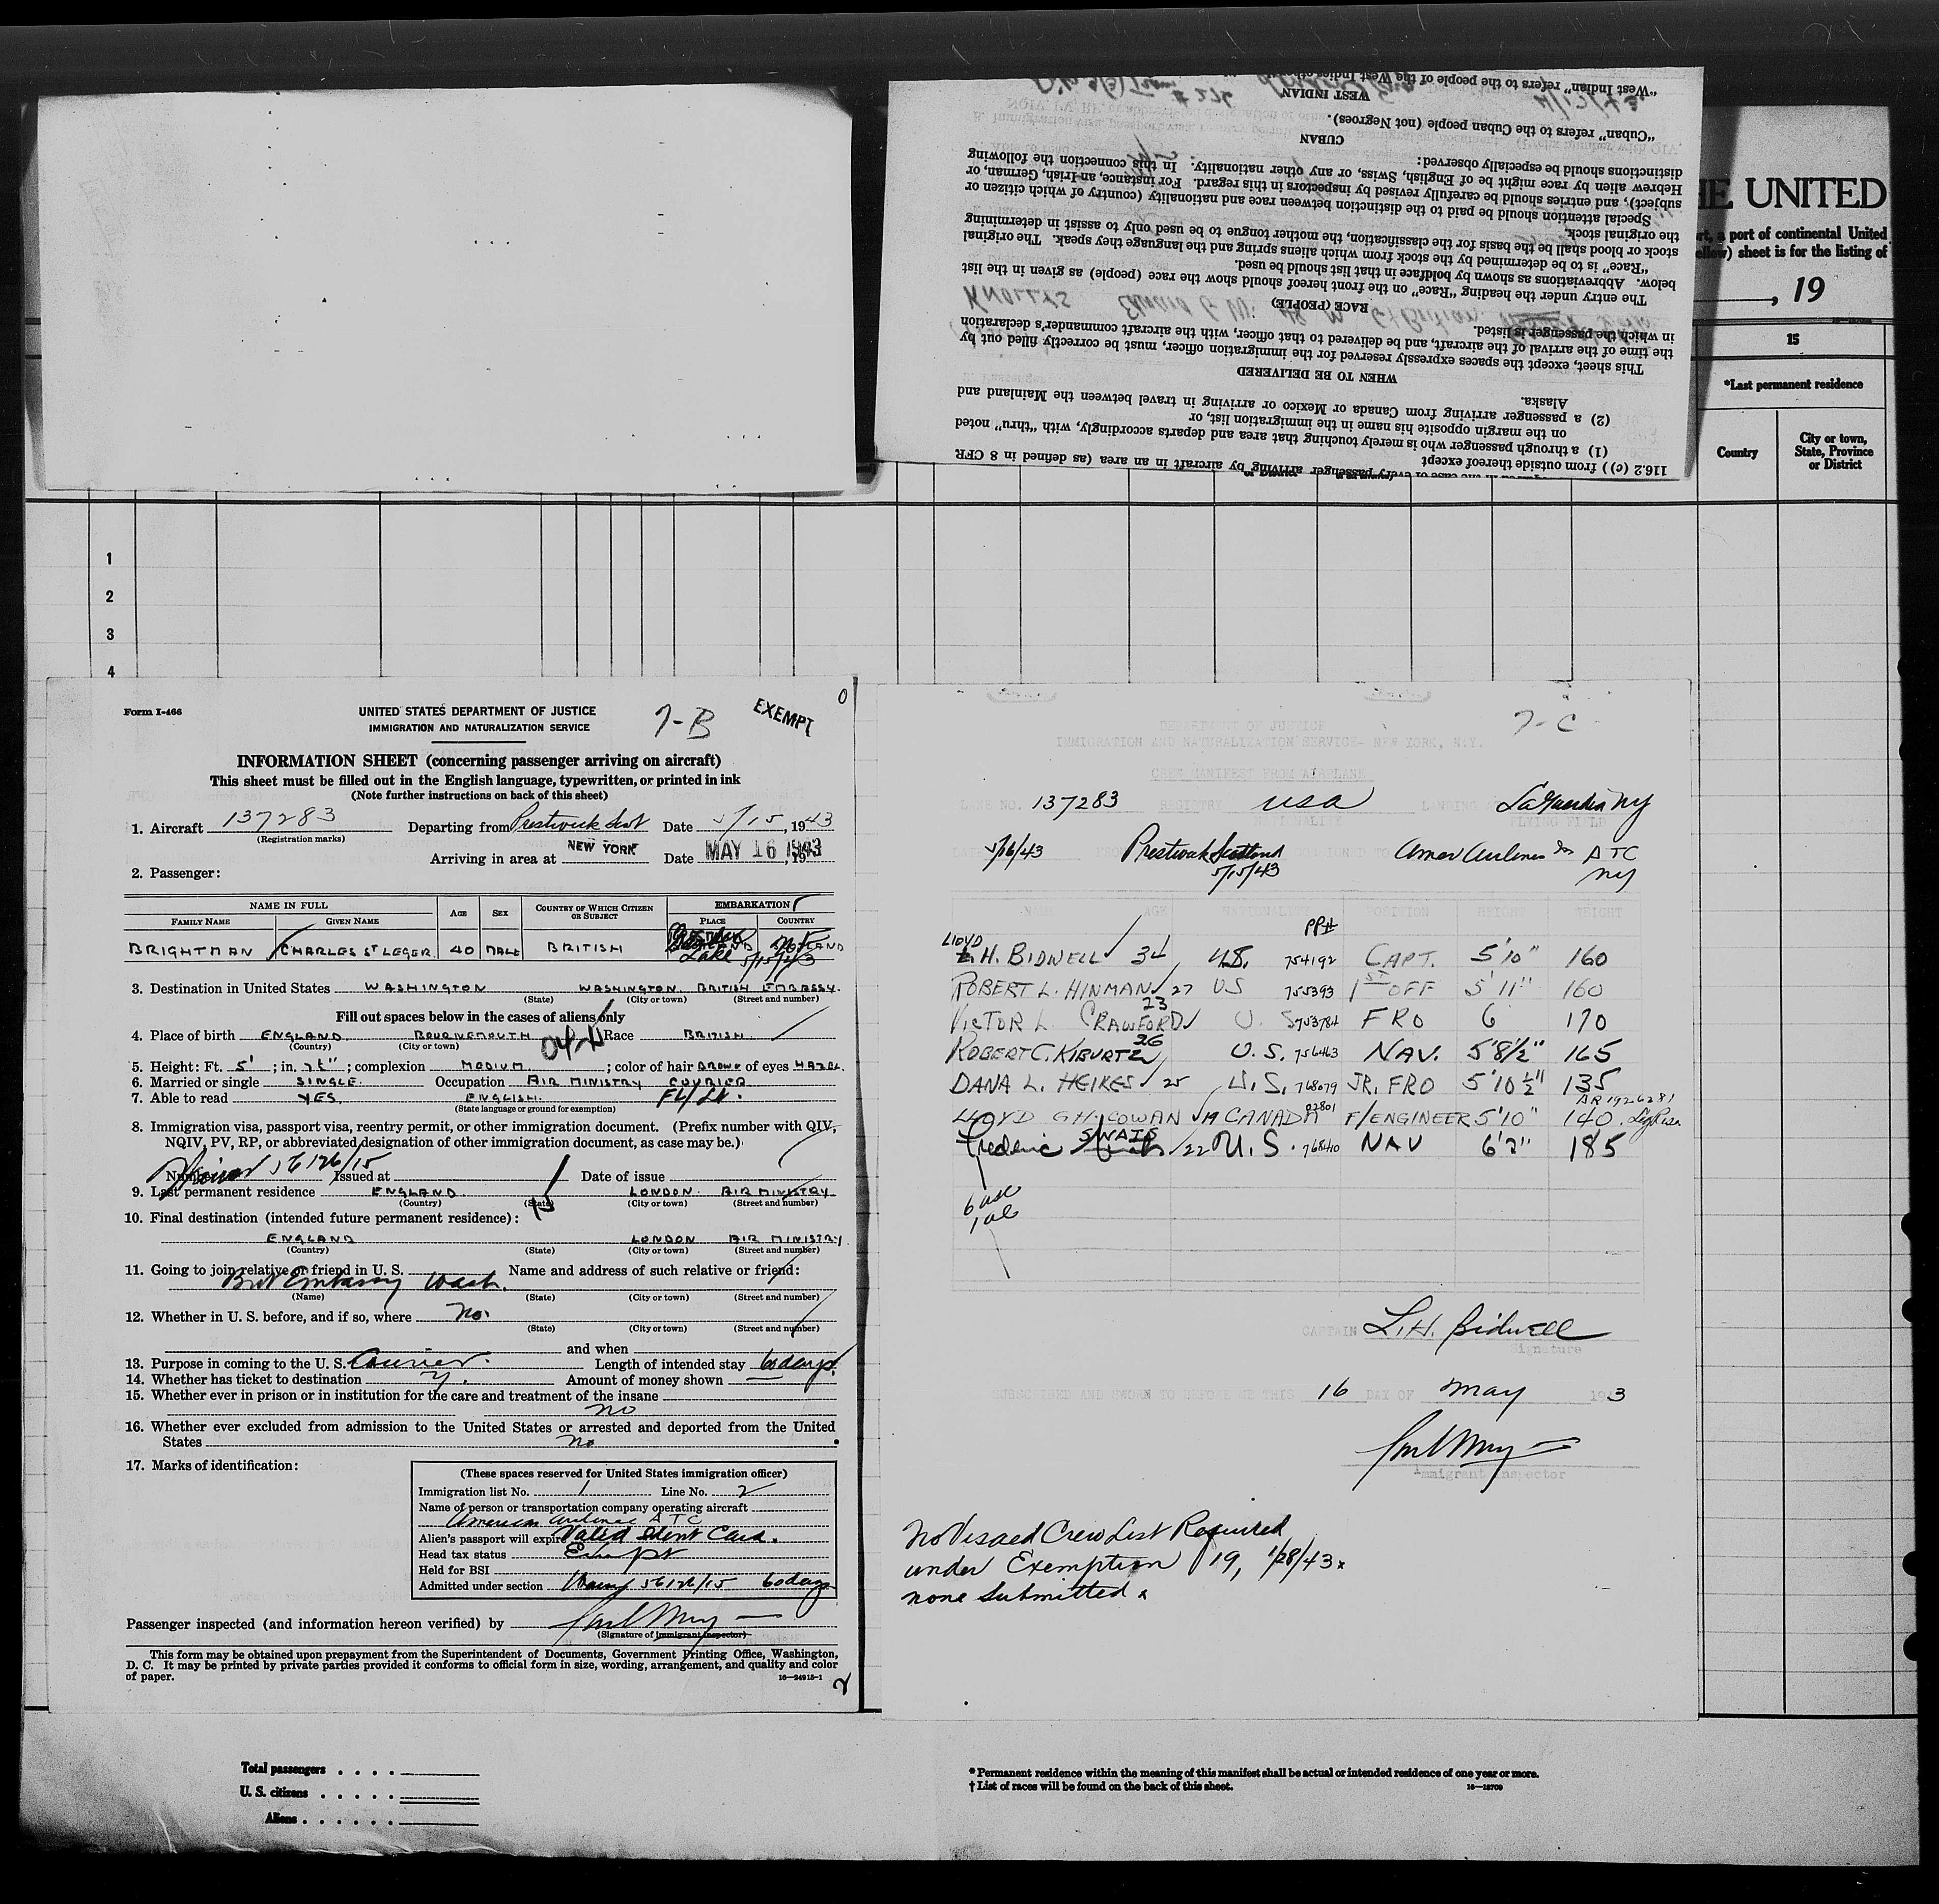 "West Indian" refers to the people of the West Indies
WEST INDIAN
"Cuban" refers to the Cuban people (not Negroes).
CUBAN
distinctions should be especially observed:
Hebrew alien by race might be of English, Swiss, or any other nationality. In this connection the following
subject), and entries should be carefully revised by inspectors in this regard. For instance, an Irish, German, or
Special attention should be paid to the distinction between race and nationality (country of which citizen or
the original stock.
stock or blood shall be the basis for the classification, the mother tongue to be used only to assist in determining
"Race" is to be determined by the stock from which aliens spring and the language they speak. The original
below. Abbreviations as shown by boldface in that list should be used.
The entry under the heading "Race" on the front hereof should show the race (people) as given in the list
RACE (PEOPLE)
KNOLLYS Edward G. W. 48 M Gt Britain
in which the passenger is listed.
the time of the arrival of the aircraft, and be delivered to that officer, with the aircraft commander's declaration
This sheet, except the spaces expressly reserved for the immigration officer, must be correctly filled out by
WHEN TO BE DELIVERED
Alaska.
(2) a passenger arriving from Canada or Mexico or arriving in travel between the Mainland and
on the margin opposite his name in the immigration list, or
(1) a through passenger who is merely touching that area and departs accordingly, with "thru" noted
116.2 (c)) from outside thereof except
in the case of every passenger arriving by aircraft in an area (as defined in 8 CFR
HE UNITED
rt, a port of continental United
ellow) sheet is for the listing of
, 19
15
*Last permanent residence
Country
City or town,
State, Province
or District
1
2
3
4
0
Form I-466
UNITED STATES DEPARTMENT OF JUSTICE
IMMIGRATION AND NATURALIZATION SERVICE
7-B
EXEMPT
INFORMATION SHEET (concerning passenger arriving on aircraft)
This sheet must be filled out in the English language, typewritten, or printed in ink
(Note further instructions on back of this sheet)
1. Aircraft 137283 Departing from Prestwick Scot Date 5/15, 1943
(Registration marks)
Arriving in area at NEW YORK Date MAY 16 1943
2. Passenger:
NAME IN FULL AGE SEX COUNTRY OF WHICH CITIZEN OR SUBJECT EMBARKATION
FAMILY NAME GIVEN NAME PLACE COUNTRY
BRIGHTMAN CHARLES ST LEGER. 40 MALE BRITISH
Lake 5/15/43
3. Destination in United States WASHINGTON WASHINGTON. BRITISH EMBASSY.
(State) (City or town) (Street and number)
Fill out spaces below in the cases of aliens only
4. Place of birth ENGLAND BOURNEMOUTH Race BRITISH.
(Country) (City or town)
04-4
5. Height: Ft. 5' ; in. 7½" ; complexion MEDIUM ; color of hair BROWN of eyes HAZEL.
6. Married or single SINGLE. Occupation AIR MINISTRY COURIER
7. Able to read YES. ENGLISH. Ft/Lt.
(State language or ground for exemption)
8. Immigration visa, passport visa, reentry permit, or other immigration document. (Prefix number with QIV,
NQIV, PV, RP, or abbreviated designation of other immigration document, as case may be.)
Number 56126/15 Issued at Date of issue
9. Last permanent residence ENGLAND LONDON. AIR MINISTRY
(Country) (State) (City or town) (Street and number)
10. Final destination (intended future permanent residence):
ENGLAND LONDON AIR MINISTRY
(Country) (State) (City or town) (Street and number)
11. Going to join relative or friend in U. S. Name and address of such relative or friend:
Brit Embassy Wash.
(Name) (State) (City or town) (Street and number)
12. Whether in U. S. before, and if so, where No.
(State) (City or town) (Street and number)
and when
13. Purpose in coming to the U. S. Courier. Length of intended stay 60 days.
14. Whether has ticket to destination y. Amount of money shown —
15. Whether ever in prison or in institution for the care and treatment of the insane
no
16. Whether ever excluded from admission to the United States or arrested and deported from the United
States no
17. Marks of identification:
(These spaces reserved for United States immigration officer)
Immigration list No. 1 Line No. 2
Name of person or transportation company operating aircraft
American Airlines ATC
Alien's passport will expire Valid Ident Card.
Head tax status Exempt
Held for BSI
Admitted under section 56126/15 60 days
Passenger inspected (and information hereon verified) by
(Signature of immigrant inspector)
This form may be obtained upon prepayment from the Superintendent of Documents, Government Printing Office, Washington,
D. C. It may be printed by private parties provided it conforms to official form in size, wording, arrangement, and quality and color
of paper. 16—24915-1
2
DEPARTMENT OF JUSTICE
7-C
IMMIGRATION AND NATURALIZATION SERVICE- NEW YORK, N.Y.
CREW MANIFEST FROM AIRPLANE
PLANE NO. 137283 REGISTRY USA LANDING LaGuardia NY
NATIONALITY FLYING FIELD
DATE 5/16/43 FROM Prestwick Scotland Amer Airlines for ATC
5/15/43 NY
NAME AGE NATIONALITY POSITION HEIGHT WEIGHT
PP#
LLOYD
L. H. BIDWELL 34 U.S. 754192 CAPT. 5'10" 160
ROBERT L. HINMAN 27 US 755393 1ST OFF 5'11" 160
VICTOR L. CRAWFORD 23 U.S 753784 FRO 6 170
ROBERT C. KIBURTZ 26 U.S. 756463 NAV. 5'8½" 165
DANA L. HEIKES 25 U.S. 768079 JR. FRO 5'10½" 135
AR 1926281
LLOYD G H COWAN 19 CANADA 02801 F/ENGINEER 5'10" 140
SWAIS
Frederic 22 U.S. 76840 NAV 6'2" 185
6 usc
1 al
CAPTAIN L.H. Bidwell
Signature
SUBSCRIBED AND SWORN TO BEFORE ME THIS 16 DAY OF May 1943
Immigrant Inspector
No Visaed Crew List Required
under Exemption 19, 1/28/43.
none submitted.
Total passengers
U. S. citizens
Aliens
* Permanent residence within the meaning of this manifest shall be actual or intended residence of one year or more.
† List of races will be found on the back of this sheet. 16—18700